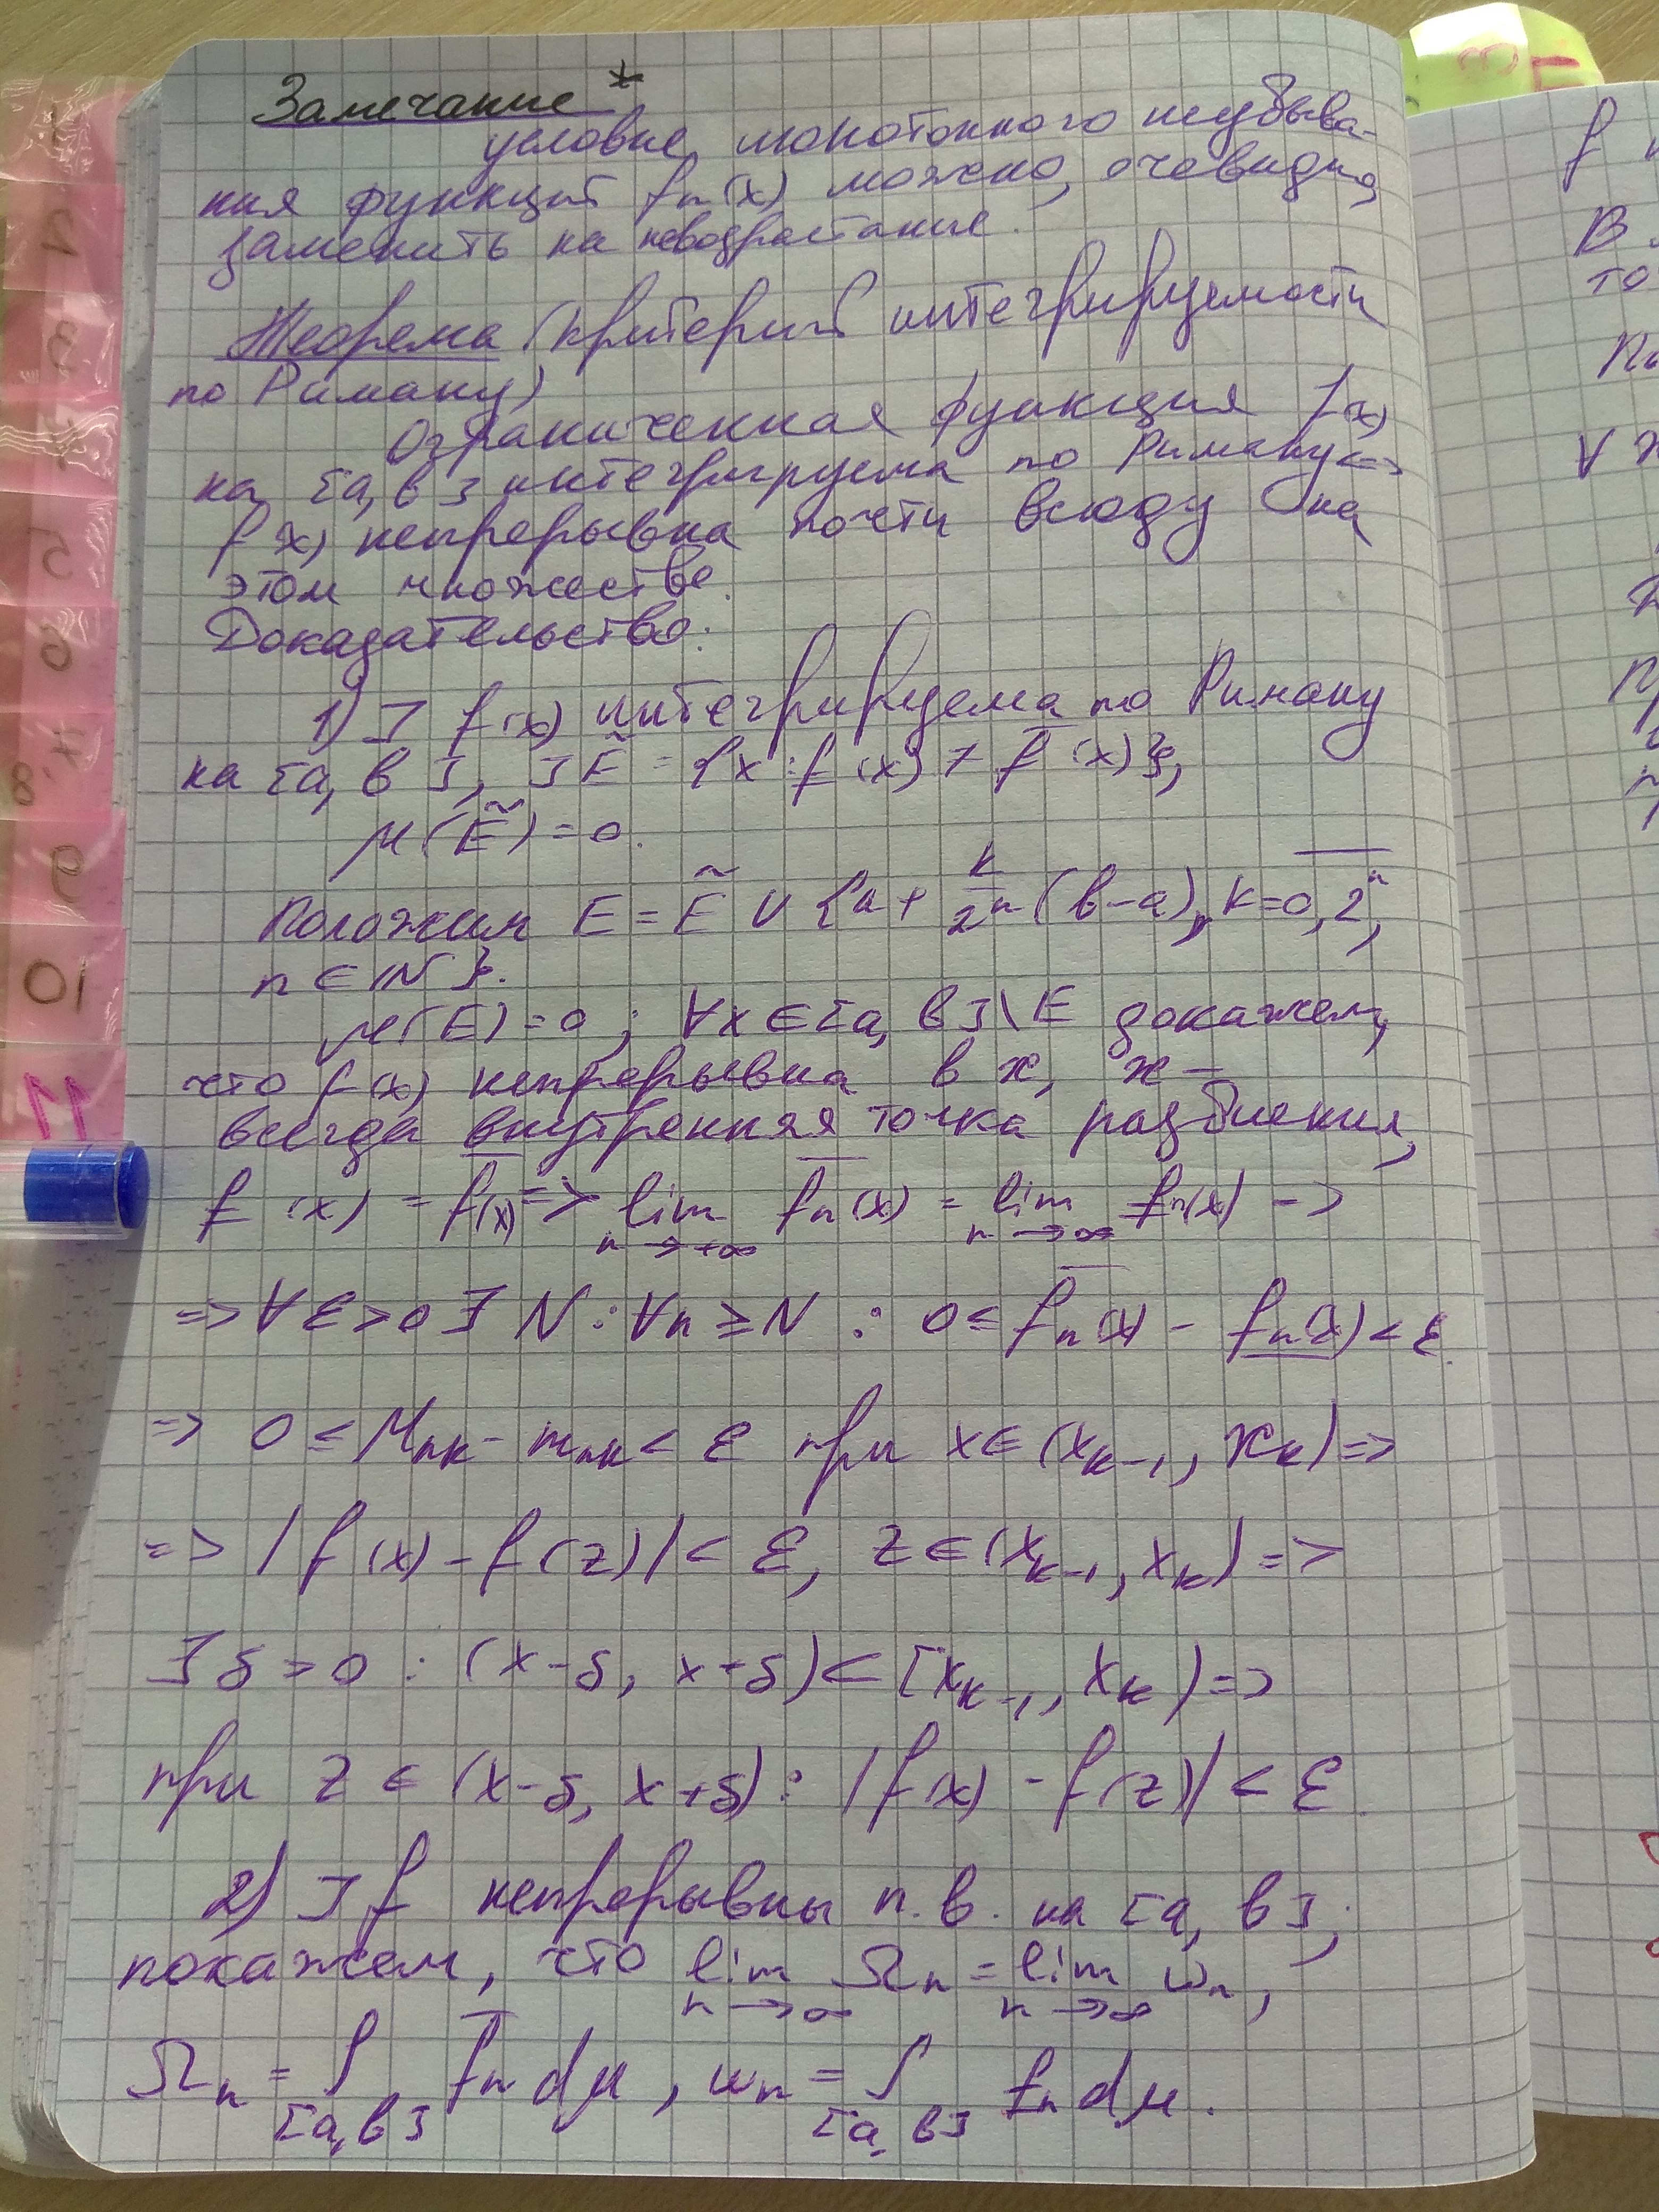 Замечание *
условие монотонного неубыва-
ния функций fₙ(x) можно, очевидно,
заменить на невозрастание.
Теорема (критерий интегрируемости
по Риману)
Ограниченная функция f(x)
на [a, в] интегрируема по Риману <=>
f(x) непрерывна почти всюду на
этом множестве.
Доказательство:
1) ] f(x) интегрируема по Риману
на [a, в], ] Ẽ = {x : f̲(x) ≠ f̅(x)},
μ(Ẽ) = 0.
Положим E = Ẽ ∪ {a + k/2ⁿ (в-a), k = 0,2ⁿ,
n ∈ ℕ}.
μ(E) = 0; ∀x ∈ [a, в] \ E докажем,
что f(x) непрерывна в x, x –
всегда внутренняя точка разбиения,
f̲(x) = f̅(x) => lim n→+∞ f̅ₙ(x) = lim n→∞ f̲ₙ(x) ->
=> ∀ε>0 ∃ N : ∀n ≥ N : 0 ≤ f̅ₙ(x) - f̲ₙ(x) < ε.
=> 0 ≤ Mₙₖ - mₙₖ < ε при x ∈ (xₖ₋₁, xₖ) =>
=> |f(x) - f(z)| < ε, z ∈ (xₖ₋₁, xₖ) =>
∃ δ > 0 : (x-δ, x+δ) ⊂ [xₖ₋₁, xₖ) =>
при z ∈ (x-δ, x+δ) : |f(x) - f(z)| < ε.
2) ] f непрерывны п.в. на [a, в],
покажем, что lim n→∞ Ωₙ = lim n→∞ ωₙ,
Ωₙ = ∫[a,в] f̅ₙ dμ, ωₙ = ∫[a,в] f̲ₙ dμ.
f
В
то
∀
10
11